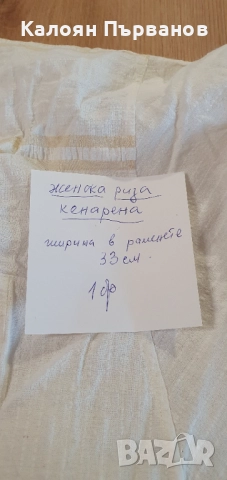 Калоян Първанов
женска риза
кенарена
ширина в рамената
33 см.
1 бр
BAZAR